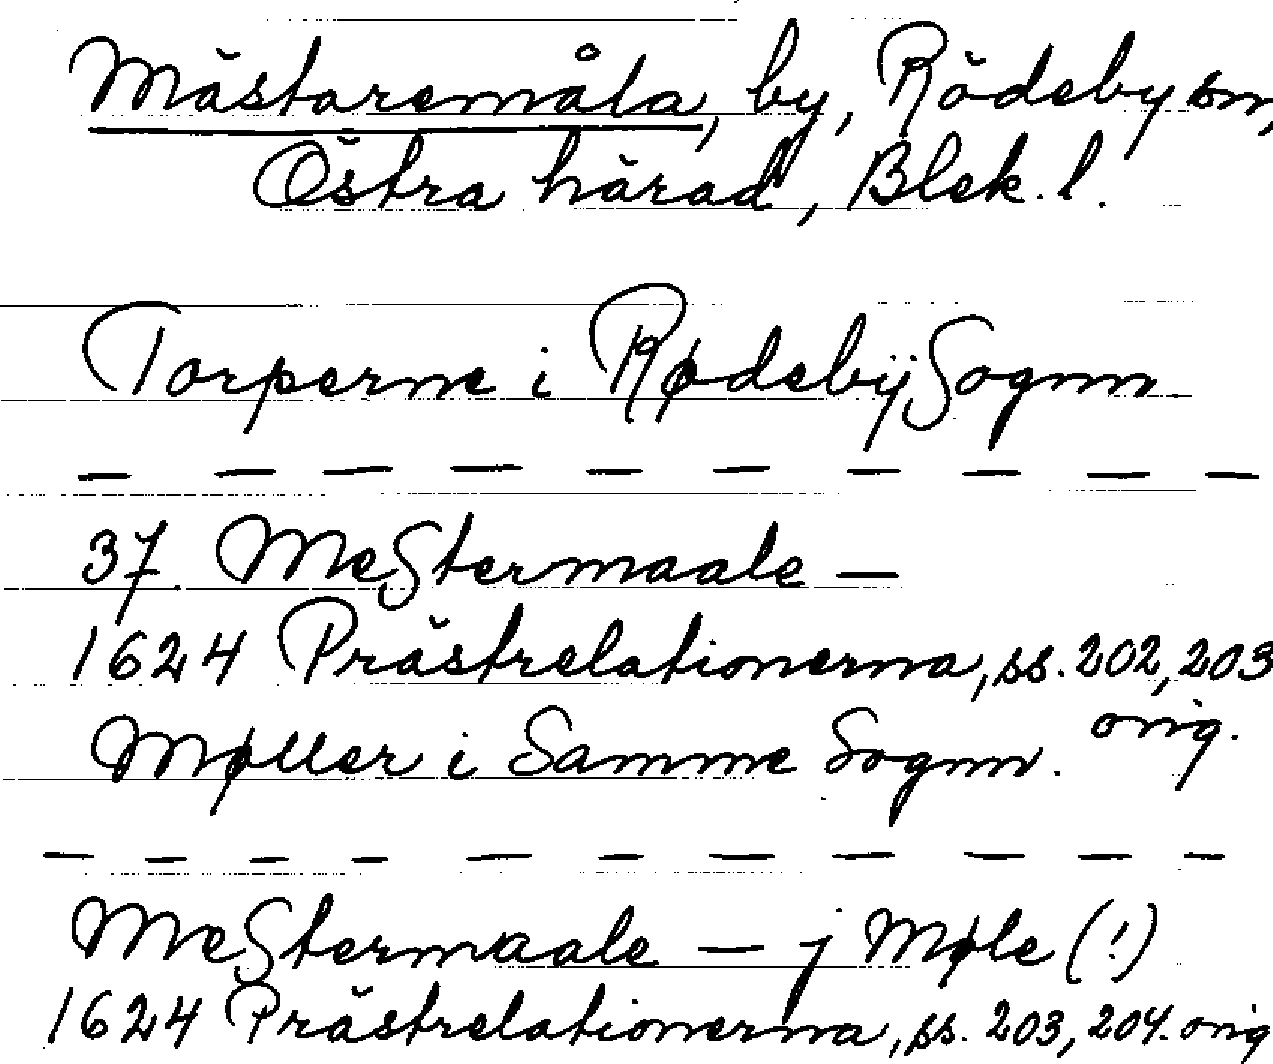 Mästaremåla, by, Rödeby sn,
Östra härad, Blek. l.
Torperne i RødebÿSognn
— — — — — — — — — —
37. MeStermaale —
1624 Prästrelationerna, ss. 202, 203
orig.
Møller i Samme Sognn.
— — — — — — — — — — —
MeStermaale — j Møle (!)
1624 Prästrelationerna, ss. 203, 204. orig